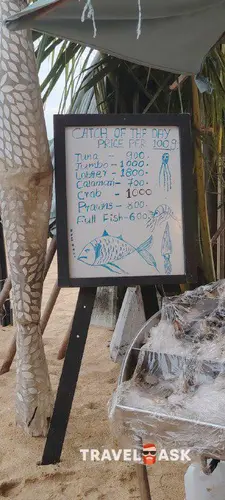 CATCH OF THE DAY
PRICE PER 100g
Tuna - 900.
Jumbo - 1000.
Lobster - 1800.
Calamari - 700.
Crab - 1000
Prawns - 800.
Full Fish - 600.
TRAVEL ASK